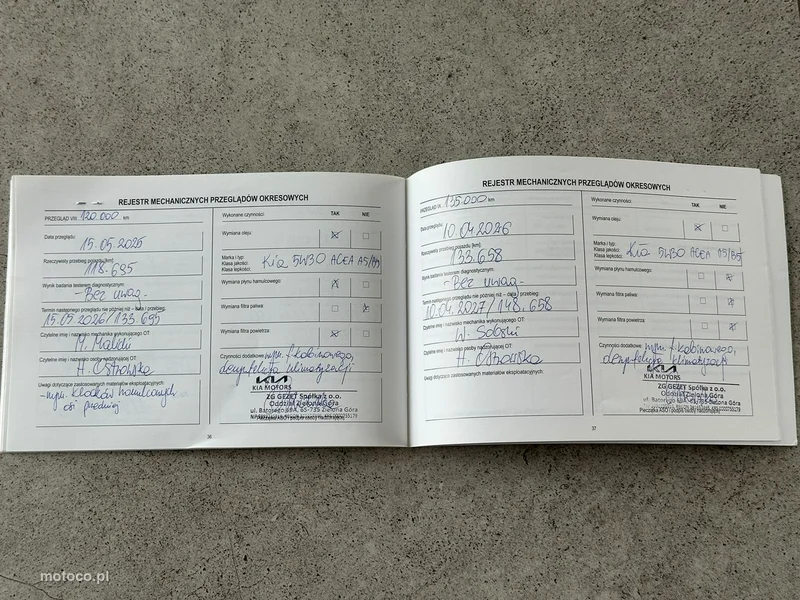 REJESTR MECHANICZNYCH PRZEGLĄDÓW OKRESOWYCH
PRZEGLĄD VIII 120.000 km
Data przeglądu:
15.05.2025
Rzeczywisty przebieg pojazdu (km):
118.695
Wynik badania testerem diagnostycznym:
-Bez uwag-
Termin następnego przeglądu nie później niż – data / przebieg:
15.05.2026/133.695
Czytelne imię i nazwisko mechanika wykonującego OT:
M.
Czytelne imię i nazwisko osoby nadzorującej OT:
A. Ostrowska
Uwagi dotyczące zastosowanych materiałów eksploatacyjnych:
-wym. klocków hamulcowych
oś przednia
Wykonane czynności: TAK NIE
Wymiana oleju:
Marka i typ:
Klasa jakości:
Klasa lepkości:
Kia 5W30 ACEA A5/B5
Wymiana płynu hamulcowego:
Wymiana filtra paliwa:
Wymiana filtra powietrza:
Czynności dodatkowe: wym. f. kabinowego,
dezynfekcja klimatyzacji
KIA
KIA MOTORS
ZG GEZET Spółka z o.o.
Oddział Zielona Góra
ul. Batorego 59A, 65-735 Zielona Góra
Pieczątka ASO i podpis osoby nadzorującej
36
REJESTR MECHANICZNYCH PRZEGLĄDÓW OKRESOWYCH
PRZEGLĄD IX 135.000 km
Data przeglądu:
10.04.2026
Rzeczywisty przebieg pojazdu (km):
133.658
Wynik badania testerem diagnostycznym:
-Bez uwag-
Termin następnego przeglądu nie później niż – data / przebieg:
10.04.2027/148.658
Czytelne imię i nazwisko mechanika wykonującego OT:
W.
Czytelne imię i nazwisko osoby nadzorującej OT:
A. Ostrowska
Uwagi dotyczące zastosowanych materiałów eksploatacyjnych:
Wykonane czynności: TAK NIE
Wymiana oleju:
Marka i typ:
Klasa jakości:
Klasa lepkości:
Kia 5W30 ACEA A5/B5
Wymiana płynu hamulcowego:
Wymiana filtra paliwa:
Wymiana filtra powietrza:
Czynności dodatkowe: wym. f. kabinowego,
dezynfekcja klimatyzacji
KIA
KIA MOTORS
ZG GEZET Spółka z o.o.
Oddział Zielona Góra
ul. Batorego 59A, 65-735 Zielona Góra
Pieczątka ASO i podpis osoby nadzorującej
37
motoco.pl